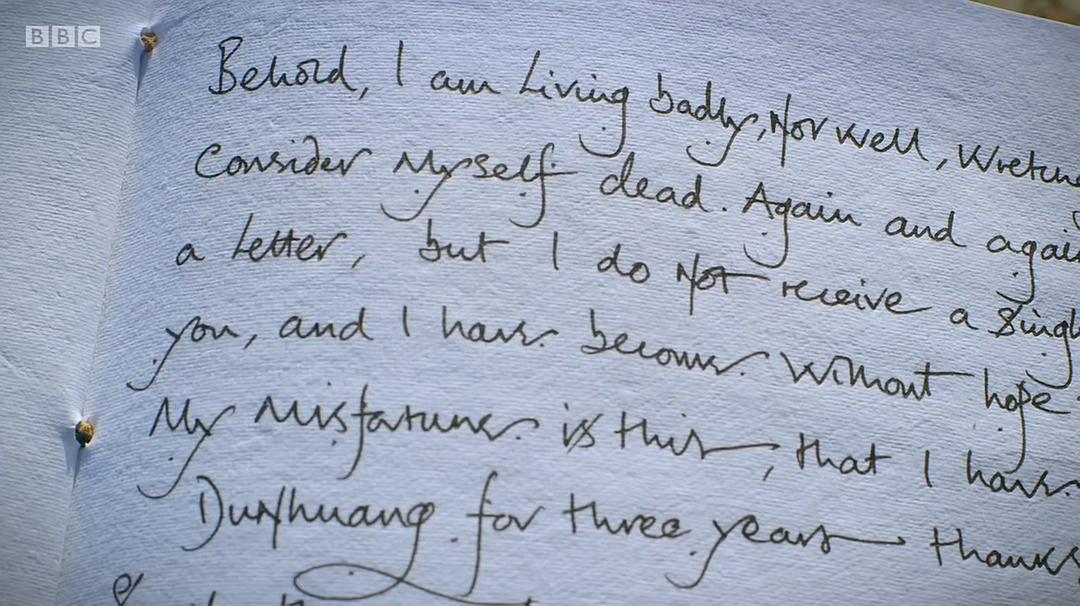 BBC
Behold, I am Living badly, Not well, Wretche
Consider Myself dead. Again and again
a letter, but I do Not receive a Singl
you, and I have become Without hope
My Misfortune is this, that I have
Dunhuang for three years thanks